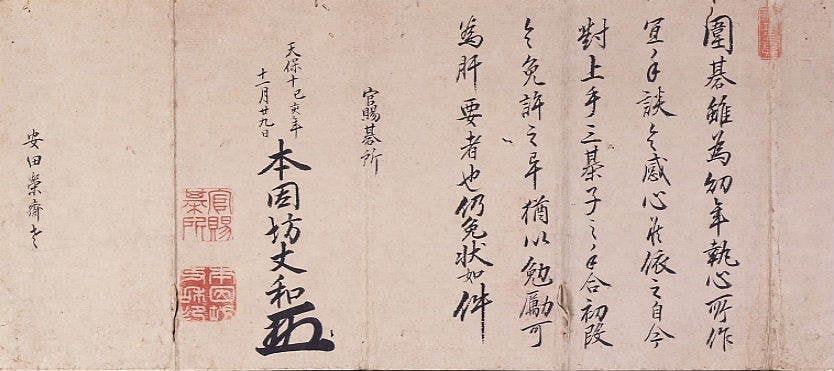 圍碁雖為幼年執心所作
宜手談令感心依之自今
對上手三碁子之手合初段
令免許之畢猶以勉勵可
為肝要者也仍免状如件
官賜碁所
天保十己亥年
十一月廿九日
本因坊丈和
官賜
碁所
安田榮齋